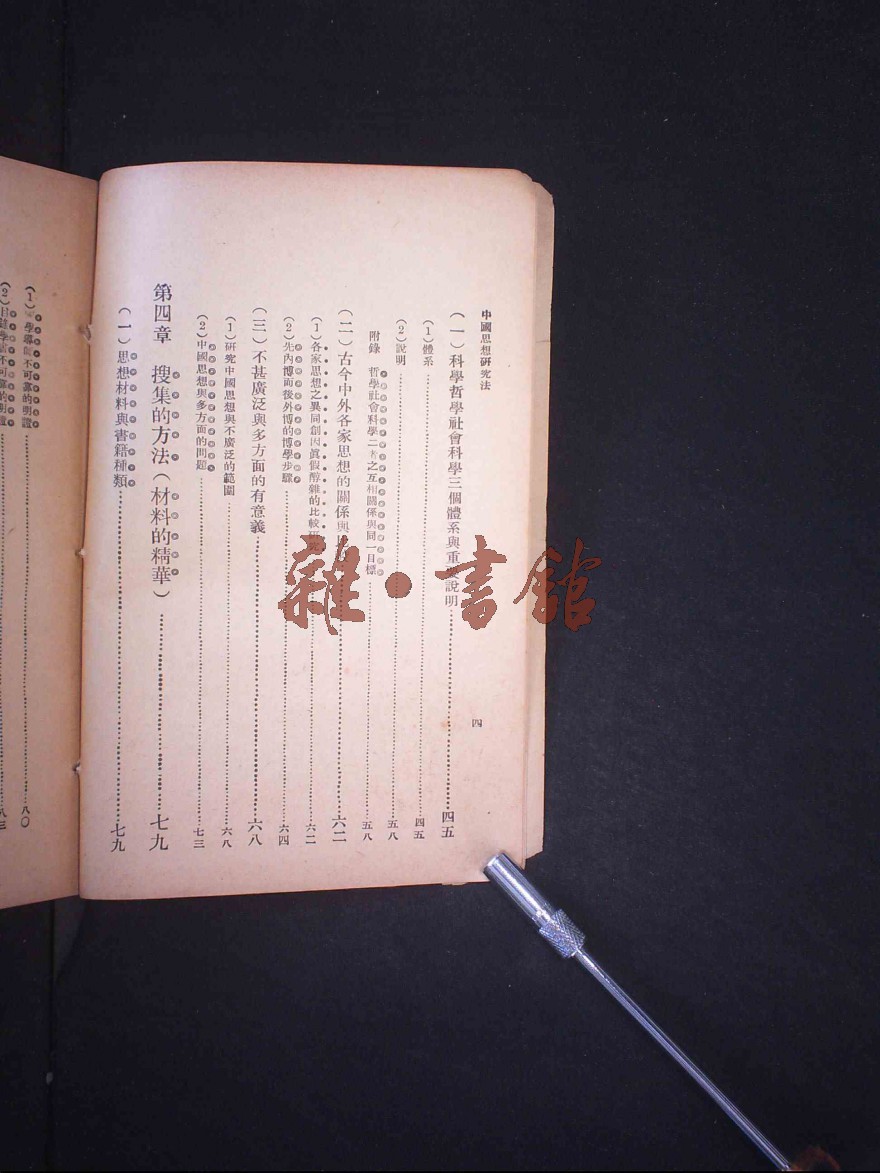 中國思想研究法
四
(一)科學哲學社會科學三個體系與重要說明 四五
(1)體系 四五
(2)說明 五八
附錄 哲學社會科學二者之互相關係與同一目標 五八
(二)古今中外各家思想的關係與 六二
(1)各家思想之異同創因眞假醇雜的比較研究 六二
(2)先內博而後外博的博學步驟 六四
(三)不甚廣泛與多方面的有意義 六八
(1)研究中國思想與不廣泛的範圍 六八
(2)中國思想與多方面的問題 七三
第四章 搜集的方法(材料的精華) 七九
(一)思想材料與書籍種類 七九
(1) 學導師不可靠的明證 八〇
(2) 不可靠的明證 八三
雜·書館